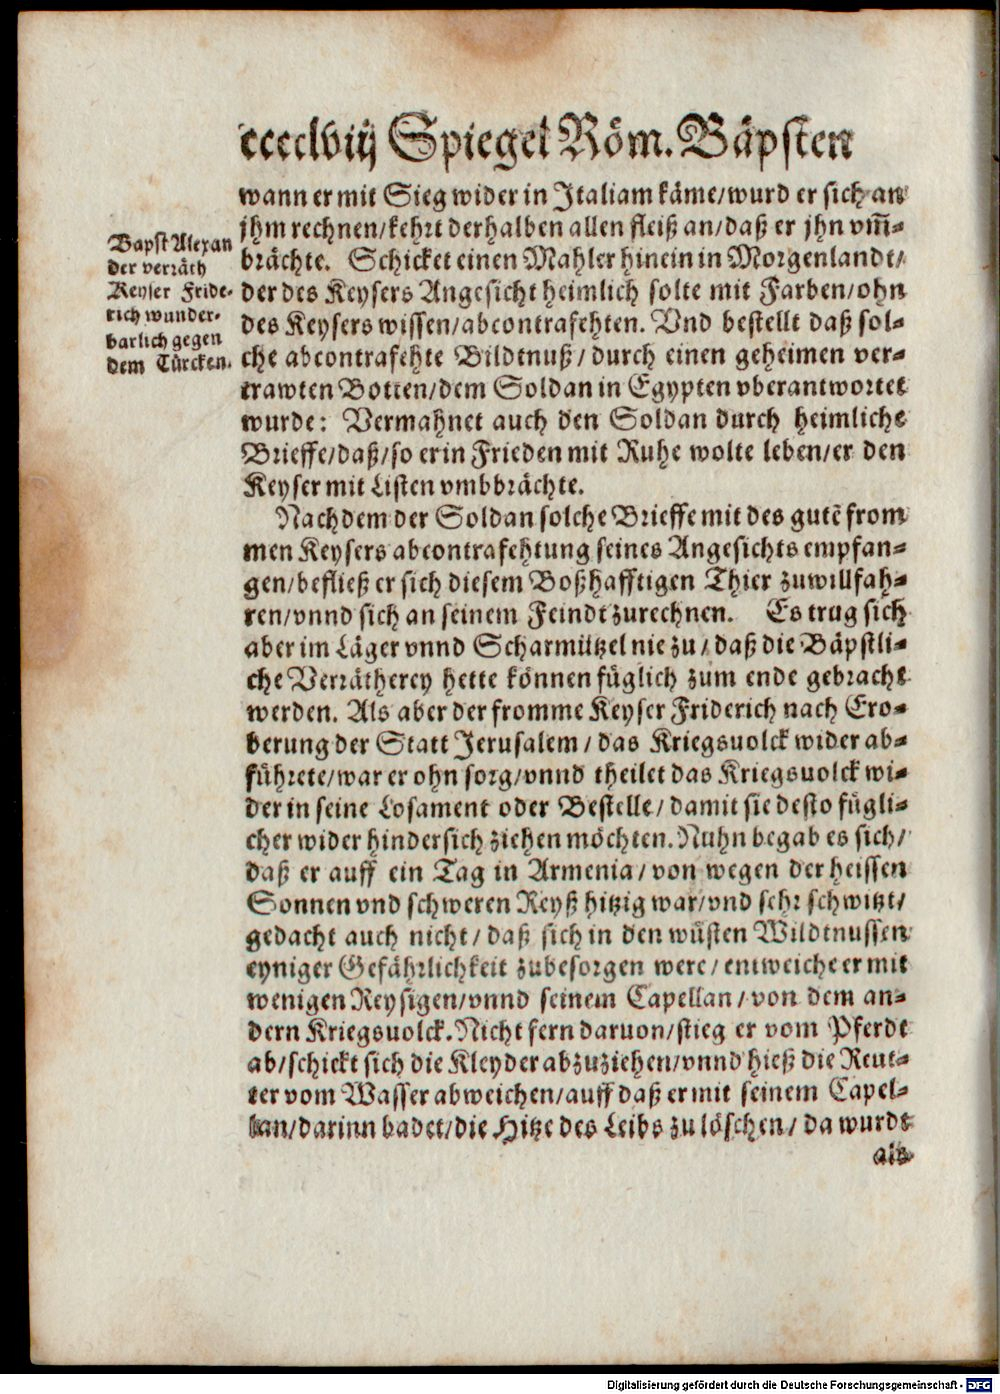 cccclviij Spiegel Röm. Bäpsten
wann er mit Sieg wider in Italiam käme/wurd er sich an
jhm rechnen/kehrt derhalben allen fleiß an/daß er jhn vm̄-
brächte. Schicket einen Mahler hinein in Morgenlandt/
der des Keysers Angesicht heimlich solte mit Farben/ohn
des Keysers wissen/abcontrafehten. Vnd bestellt daß sol-
che abcontrafehte Bildtnuß/durch einen geheimen ver-
trawten Botten/dem Soldan in Egypten vberantwortet
wurde: Vermahnet auch den Soldan durch heimliche
Brieffe/daß/so er in Frieden mit Ruhe wolte leben/er den
Keyser mit Listen vmbbrächte.
Bapst Alexan
der verräth
Keyser Fride-
rich wunder-
barlich gegen
dem Türcken.
Nachdem der Soldan solche Brieffe mit des gutē from
men Keysers abcontrafehtung seines Angesichts empfan-
gen/befließ er sich diesem Boßhafftigen Thier zuwillfah-
ren/vnnd sich an seinem Feindt zurechnen. Es trug sich
aber im Läger vnnd Scharmützel nie zu/daß die Bäpstli-
che Verrätherey hette können füglich zum ende gebracht
werden. Als aber der fromme Keyser Friderich nach Ero-
berung der Statt Jerusalem/das Kriegsuolck wider ab-
führete/war er ohn sorg/vnnd theilet das Kriegsuolck wi-
der in seine Losament oder Bestelle/damit sie desto fügli-
cher wider hindersich ziehen möchten. Nuhn begab es sich/
daß er auff ein Tag in Armenia/von wegen der heissen
Sonnen vnd schweren Reyß hitzig war/vnd sehr schwitzt/
gedacht auch nicht/daß sich in den wüsten Wildtnussen
eyniger Gefährlichkeit zubesorgen were/entweiche er mit
wenigen Reysigen/vnnd seinem Capellan/von dem an-
dern Kriegsuolck. Nicht fern daruon/stieg er vom Pferdt
ab/schickt sich die Kleyder abzuziehen/vnnd hieß die Reut-
ter vom Wasser abweichen/auff daß er mit seinem Capel-
lan/darinn badet/die Hitze des Leibs zu löschen/da wurdt
als
Digitalisierung gefördert durch die Deutsche Forschungsgemeinschaft - DFG